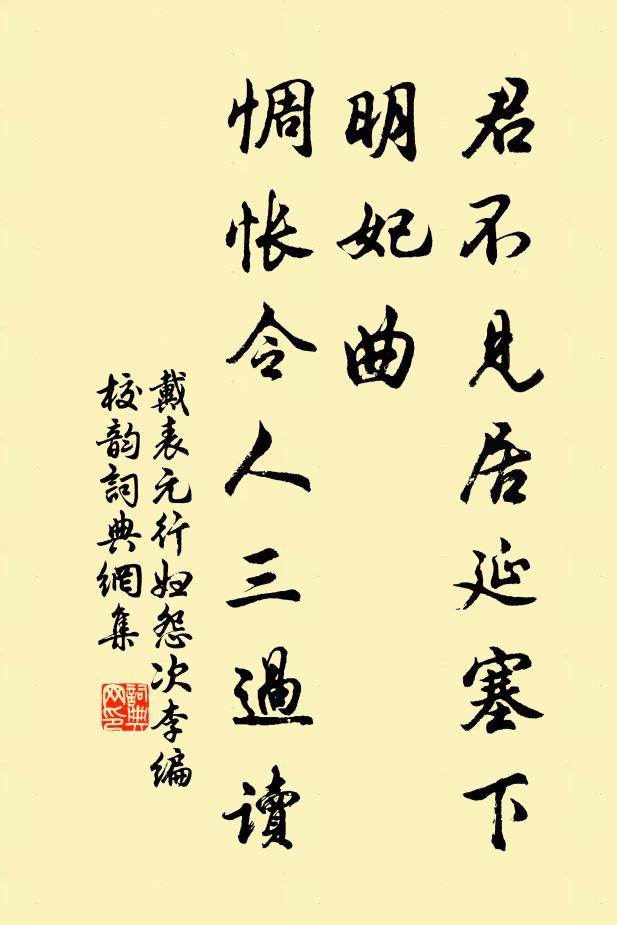 君不見居延塞下
明妃曲
惆悵令人三過讀
戴表元行婦怨次李編
校韵詞典網集
詞典网印